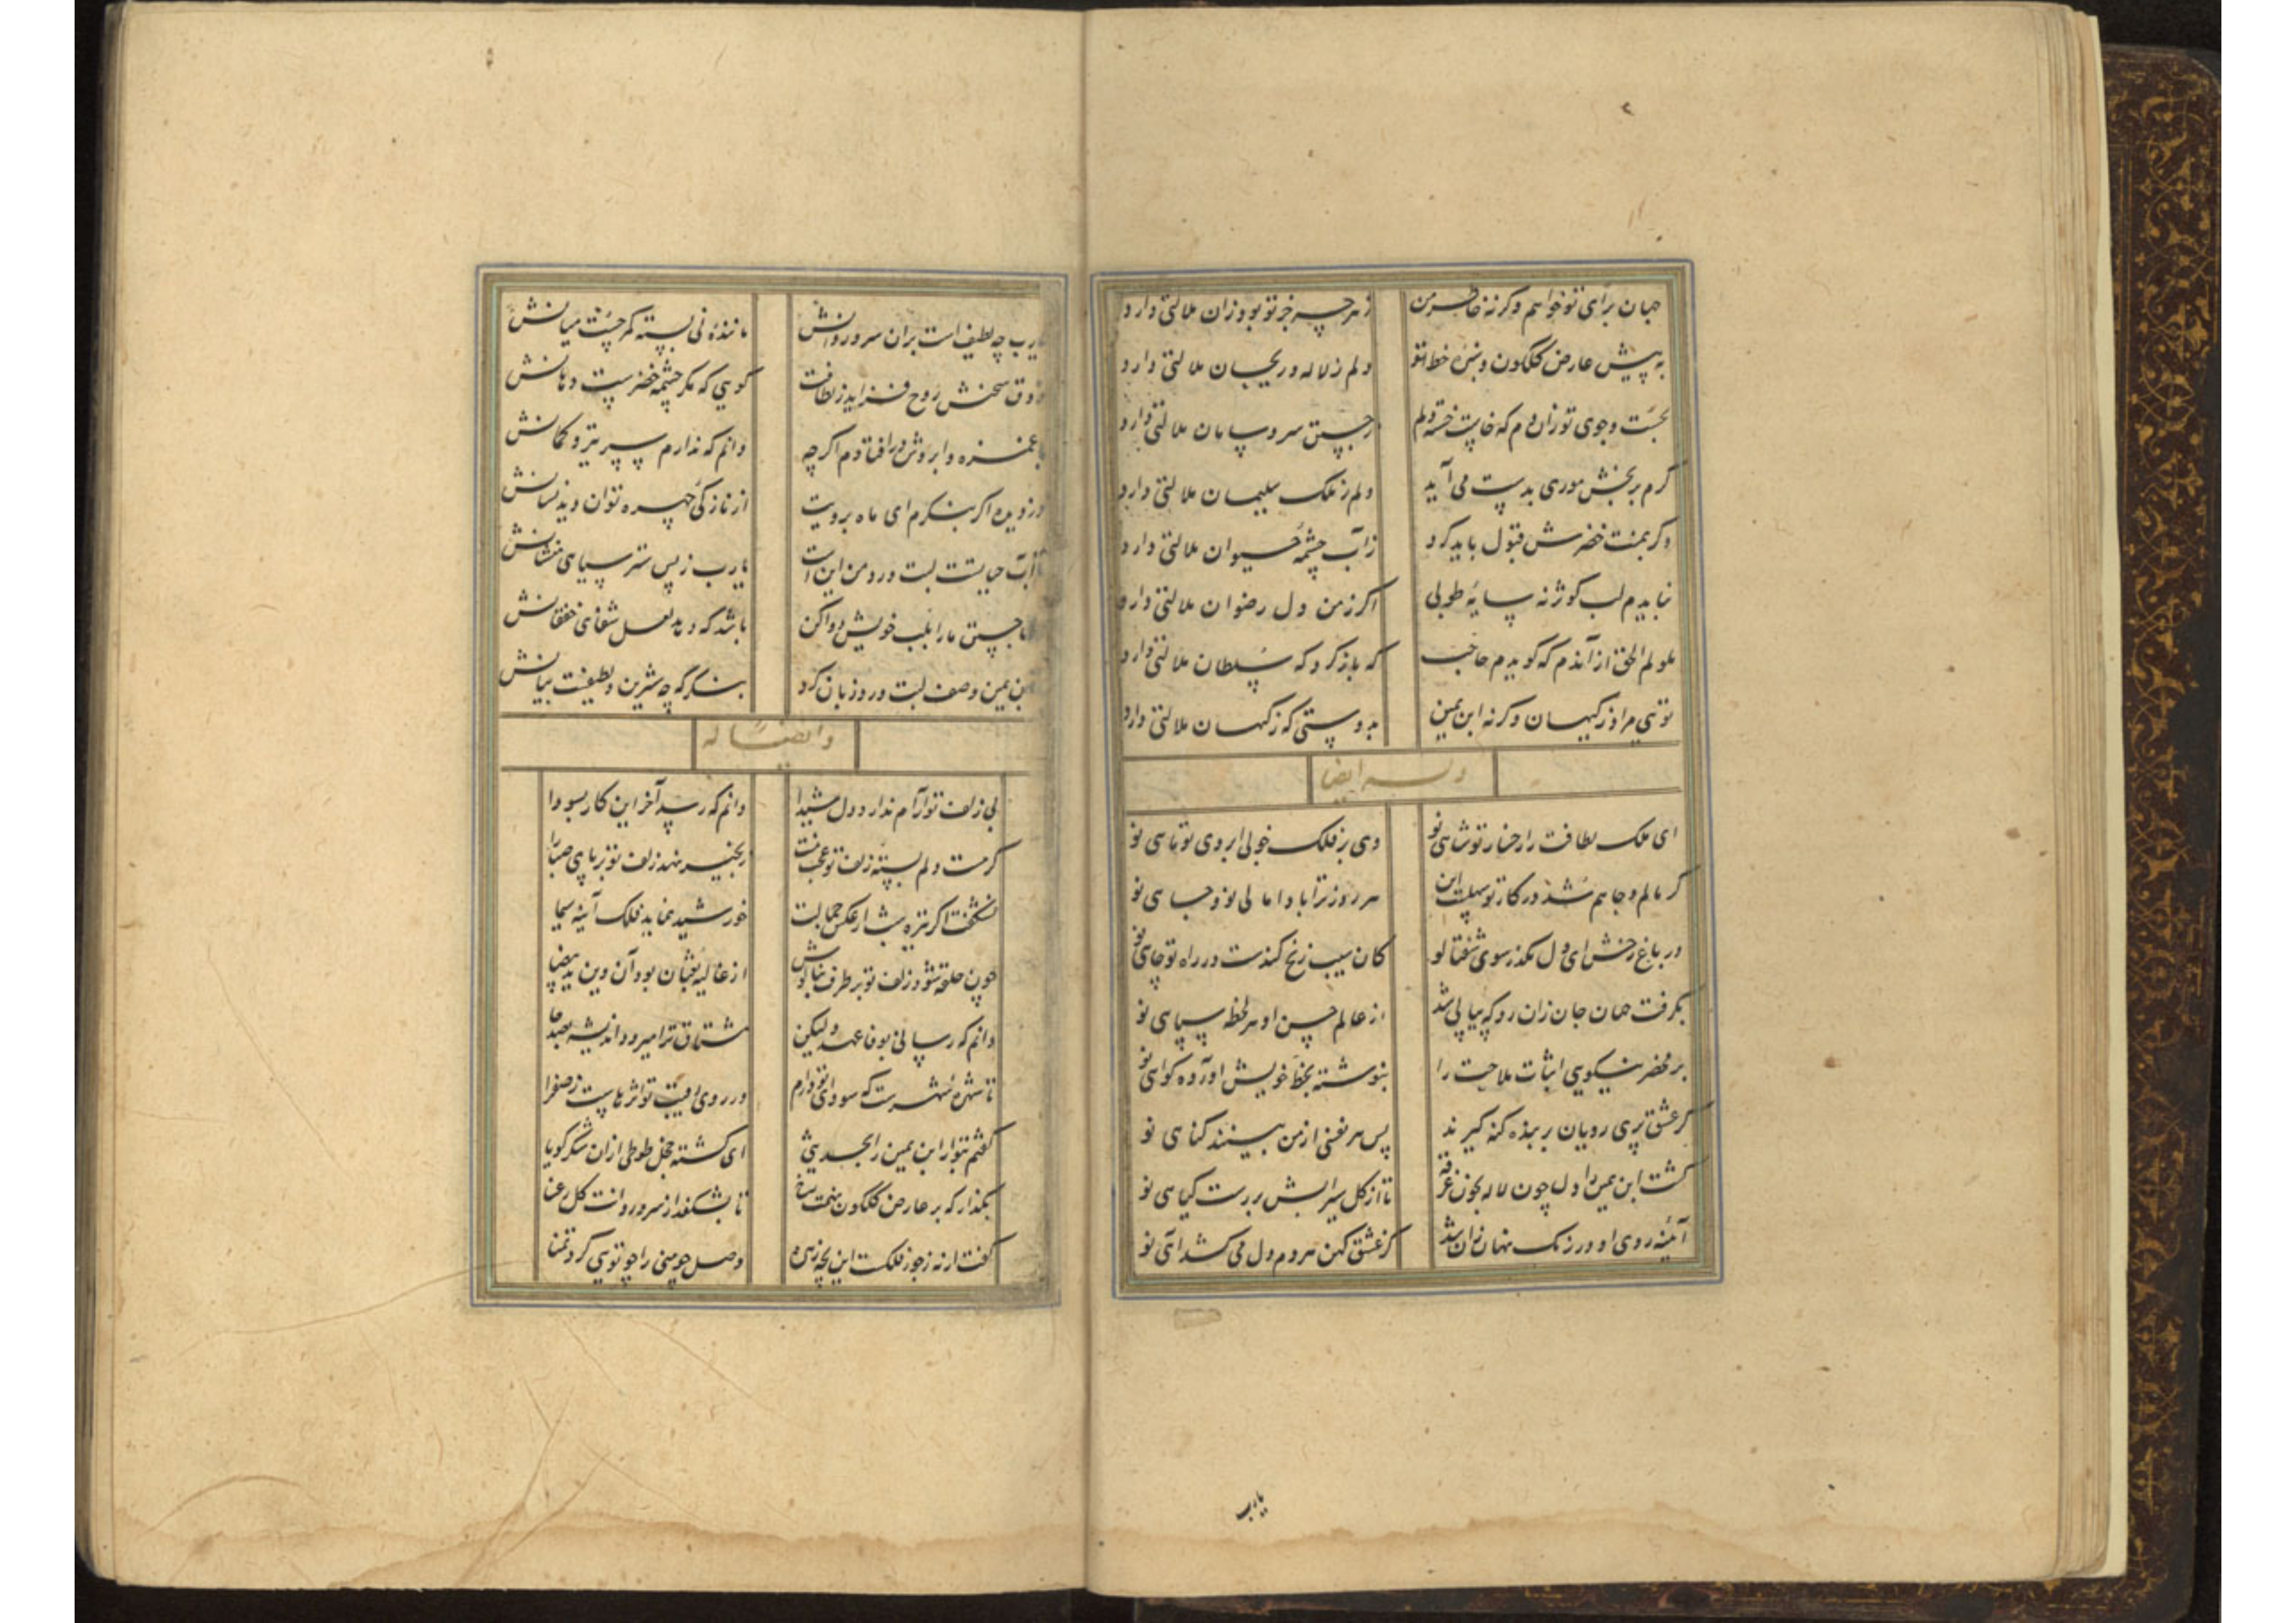 ۲
جهان برای تو خواهم وگرنه خاطر من
ز هر چه جز تو بود زان ملالتی دارد
به پیش عارض گلگون و سبزه خط تو
دلم ز لاله و ریحان ملالتی دارد
بجست و جوی تو زان دم که خاست خسته دلم
ز جستن سر و سامان ملالتی دارد
کرم بر بخش موری بدست می آید
دلم ز ملک سلیمان ملالتی دارد
وگر بمنت خضرش قبول باید کرد
ز آب چشمه حیوان ملالتی دارد
نیابدم لب کوثر نه سایه طوبی
اگر ز من دل رضوان ملالتی دارد
ملولم الحق از آندم که گویدم حاجب
که بازگرد که سلطان ملالتی دارد
تویی مراد ز کیهان وگرنه ابن یمین
بدوستی که ز کیهان ملالتی دارد
وله ایضا
ای ملک لطافت را رخسار تو شاهی نو
وی بر فلک خوبی ابروی تو ماهی نو
گر مالم و جاهم شد در کار تو سهلست این
هر روز ترا بادا مالی نو و جاهی نو
در باغ رخش ای دل مگذر سوی شفتالو
کان سیب زنخ کندست در راه تو چاهی نو
بگرفت جهان جان زان رو که پیاپی شد
از عالم حسن او هر لحظه سپاهی نو
بر محضر نیکویی اثبات ملاحت را
بنوشته بخط خویش آورده گواهی نو
گر عشق پری رویان بر بنده گنه گیرند
پس هر نفسی از من بینند گناهی نو
گشت ابن یمین را دل چون لاله بخون غرقه
تا از گل سیرابش بر رست گیاهی نو
آئینه روی او در زنگ نهان زان شد
کز عشق کهن هر دم دل می کشد آهی نو
یارب
یارب چه لطیف است بران سرو روانش
مانندۀ نی بسته کمر چست میانش
ذوق سخنش روح فزاید ز لطافت
گویی که مگر چشمه خضرست دهانش
با غمزه و ابروش در افتادم اگر چه
دانم که ندارم سپر تیر و کمانش
دزدیده اگر بنگرم ای ماه برویت
از نازکی چهره توان دید نشانش
تا آب حیاتست لبت ورد من این است
یارب ز پس ستر سیاهی منشانش
با جستن ما را بلب خویش دوا کن
باشد که دهد لعل شفای خفقانش
ابن یمین وصف لبت ورد زبان کرد
بنگر که چه شیرین و لطیفست بیانش
و ایضا له
بی زلف تو آرام ندارد دل شیدا
دانم که رسد آخر این کار بسودا
گر هست دلم بسته زلف تو عجب نیست
زنجیر نهد زلف تو بر پای صبا را
نشگفت اگر تیره شب از عکس جمالت
خورشید نماید فلک آینه سیما
چون حلقه شود زلف تو بر طرف بناگوش
از غالیه ثعبان بود آن وین ید بیضا
دانم که رسانی بوفا عهد ولیکن
مشتاق ترا میرود اندیشه بصد جا
تا شهره شهرست که سودای تو دارم
در روی رقیب تو اثرهاست ز صفرا
گفتم تو از ابن یمین را بحدیثی
ای گشته خجل طوطی ازان شکر گویا
بگذار که بر عارض گلگون بنهمت رخ
تا بشکفد از سرو روانت گل رعنا
گفت ار نه ز جور فلکست این بچه زهره
وصل چو منی را چو تویی کرد تمنا